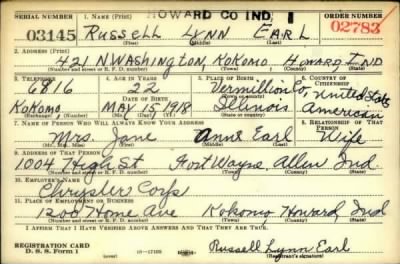 HOWARD CO IND, 1
SERIAL NUMBER 1. NAME (Print) ORDER NUMBER
03145 RUSSELL LYNN EARL 02783
(First) (Middle) (Last)
2. ADDRESS (Print)
421 N. WASHINGTON, KOKOMO HOWARD IND
(Number and street or R. F. D. number) (Town) (County) (State)
3. TELEPHONE 4. AGE IN YEARS 5. PLACE OF BIRTH 6. COUNTRY OF CITIZENSHIP
6816 22 Vermillion Co, United States
DATE OF BIRTH
KOKOMO MAY 15 1918 Illinois American
(Exchange) (Number) (Mo.) (Day) (Yr.) (State or country)
7. NAME OF PERSON WHO WILL ALWAYS KNOW YOUR ADDRESS 8. RELATIONSHIP OF THAT PERSON
Mrs. Jane Anne Earl Wife
(Mr., Mrs., Miss) (First) (Middle) (Last)
9. ADDRESS OF THAT PERSON
1004 High St Fort Wayne Allen Ind.
(Number and street or R. F. D. number) (Town) (County) (State)
10. EMPLOYER'S NAME
Chrysler Corp
11. PLACE OF EMPLOYMENT OR BUSINESS
1200 Home Ave Kokomo Howard Ind
(Number and street or R. F. D. number) (Town) (County) (State)
I AFFIRM THAT I HAVE VERIFIED ABOVE ANSWERS AND THAT THEY ARE TRUE.
REGISTRATION CARD
D. S. S. Form 1 (over) 16-17105 Russell Lynn Earl
(Registrant's signature)